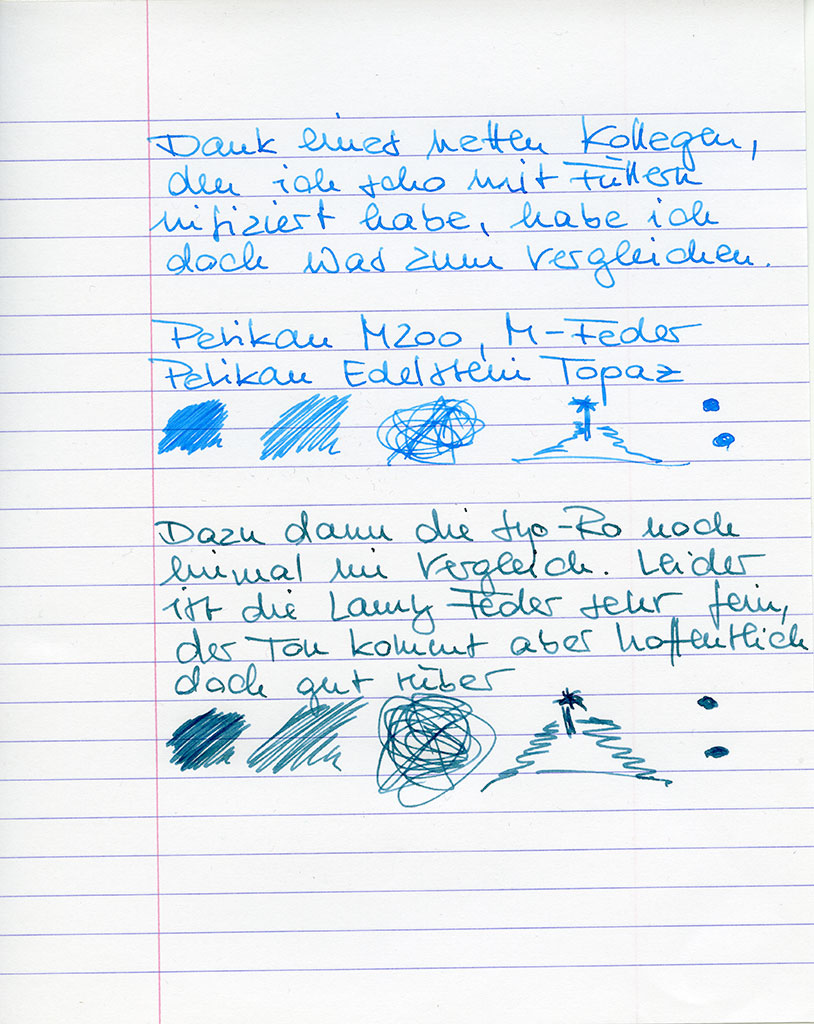 Dank eines netten Kollegen,
den ich scho mit Füllern
infiziert habe, habe ich
doch was zum Vergleichen.
Pelikan M200, M-Feder
Pelikan Edelstein Topaz
Dazu dann die syo-Ro noch
einmal im Vergleich. Leider
ist die Lamy Feder sehr fein,
der Ton kommt aber hoffentlich
doch gut rüber